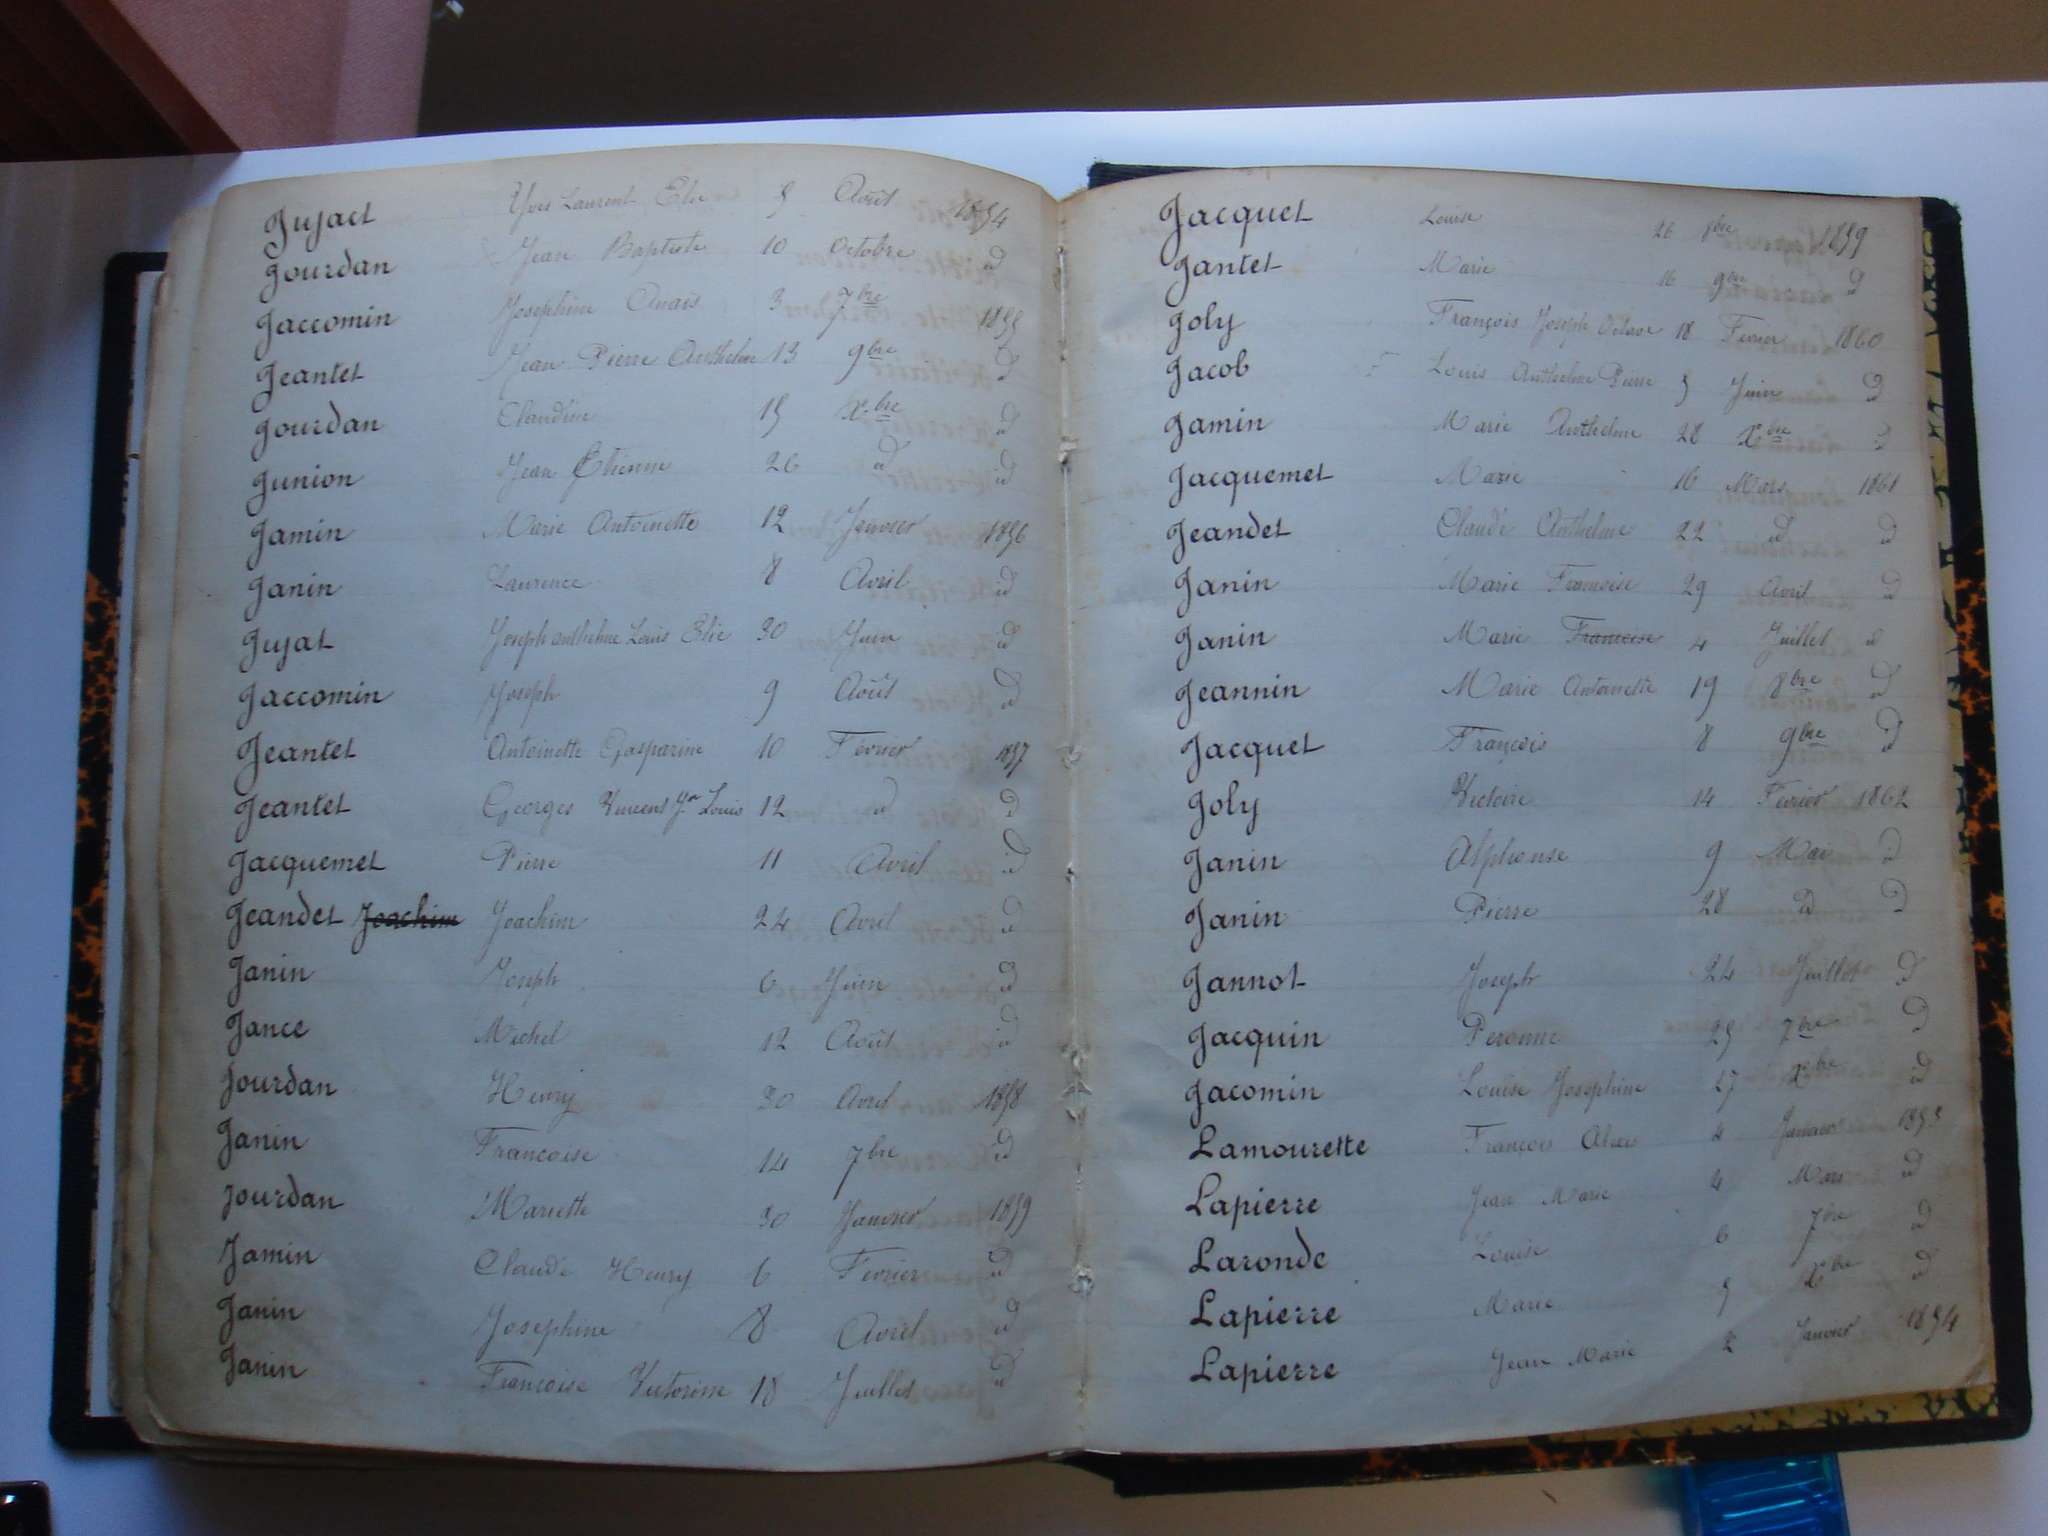 Jujact Yves Laurent Elie 5 Août 1854
Jourdan Jean Baptiste 10 Octobre id
Jaccomin Joséphine Anaïs 3 7bre 1855
Jeantet Jean Pierre Anthelme 13 9bre id
Jourdan Claudine 15 X.bre id
Junion Jean Etienne 26 id id
Jamin Marie Antoinette 12 Janvier 1856
Janin Laurence 8 Avril id
Jujat Joseph anthelme Louis Elie 30 Juin id
Jaccomin Joseph 9 Août id
Jeantet Antoinette Gasparine 10 Février 1857
Jeantet Georges Vincent Louis 12 id id
Jacquemet Pierre 11 Avril id
Jeandet Joachim Joachim 24 Avril id
Janin Joseph 6 Juin id
Jance Michel 12 Août id
Jourdan Henry 30 Avril 1858
Janin Francoise 14 7bre id
Jourdan Mariette 30 Janvier 1859
Jamin Claude Henry 6 Fevrier id
Janin Josephine 8 Avril id
Janin Francoise Victorine 18 Juillet id
Jacquet Louise 26 8bre 1859
Jantet Marie 16 9bre id
Joly François Joseph Octave 18 Fevrier 1860
Jacob Louis Anthelme Pierre 5 Juin id
Jamin Marie Anthelme 28 Xbre id
Jacquemet Marie 16 Mars 1861
Jeandet Claude Anthelme 22 id id
Janin Marie Francoise 29 Avril id
Janin Marie Francoise 4 Juillet id
Jeannin Marie Antoinette 19 8bre id
Jacquet François 8 9bre id
Joly Victoire 14 Février 1862
Janin Alphonse 9 Mai id
Janin Pierre 28 id id
Jannot Joseph 24 Juillet id
Jacquin Peronne 25 7bre id
Jacomin Louise Josephine 27 Xbre id
Lamourette François 4 Janvier 1853
Lapierre Jean Marie 4 Mars id
Laronde Louise 6 7bre id
Lapierre Marie 5 Xbre id
Lapierre Jean Marie 2 Janvier 1854